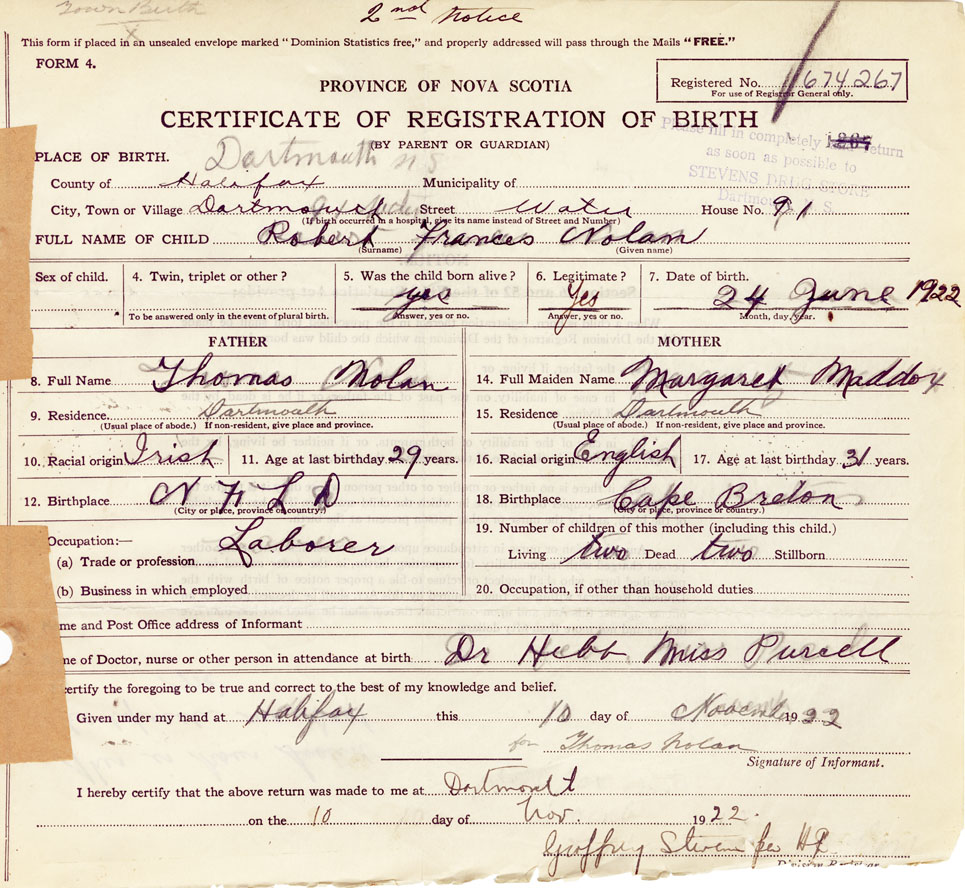 Town Birth
x
2nd Notice
This form if placed in an unsealed envelope marked "Dominion Statistics free," and properly addressed will pass through the Mails "FREE."
FORM 4.
PROVINCE OF NOVA SCOTIA
Registered No. 674267
For use of Registrar General only.
CERTIFICATE OF REGISTRATION OF BIRTH
(BY PARENT OR GUARDIAN)
Please fill in completely and return
as soon as possible to
STEVENS DRUG STORE
Dartmouth, N. S.
PLACE OF BIRTH. Dartmouth N S
County of Halifax Municipality of
City, Town or Village Dartmouth Street Water House No. 91
(If birth occurred in a hospital, give its name instead of Street and Number)
FULL NAME OF CHILD Robert Frances Nolan
(Surname) (Given name)
Sex of child. 4. Twin, triplet or other? 5. Was the child born alive? 6. Legitimate? 7. Date of birth.
yes Yes 24 June 1922
To be answered only in the event of plural birth. Answer, yes or no. Answer, yes or no. Month, day, year.
FATHER MOTHER
8. Full Name Thomas Nolan 14. Full Maiden Name Margaret Maddox
9. Residence. Dartmouth 15. Residence Dartmouth
(Usual place of abode.) If non-resident, give place and province. (Usual place of abode.) If non-resident, give place and province.
10. Racial origin Irish 11. Age at last birthday 29 years. 16. Racial origin English 17. Age at last birthday 31 years.
12. Birthplace N F L D 18. Birthplace Cape Breton
(City or place, province or country.) (City or place, province or country.)
19. Number of children of this mother (including this child.)
Occupation:— Laborer
Living two Dead two Stillborn
(a) Trade or profession
(b) Business in which employed 20. Occupation, if other than household duties
me and Post Office address of Informant
ne of Doctor, nurse or other person in attendance at birth Dr Hebb Miss Purcell
certify the foregoing to be true and correct to the best of my knowledge and belief.
Given under my hand at Halifax this 10 day of 1922
for Thomas Nolan
Signature of Informant.
I hereby certify that the above return was made to me at Dartmouth
on the 10 day of Nov. 1922.
Geoffrey Stevens per HR